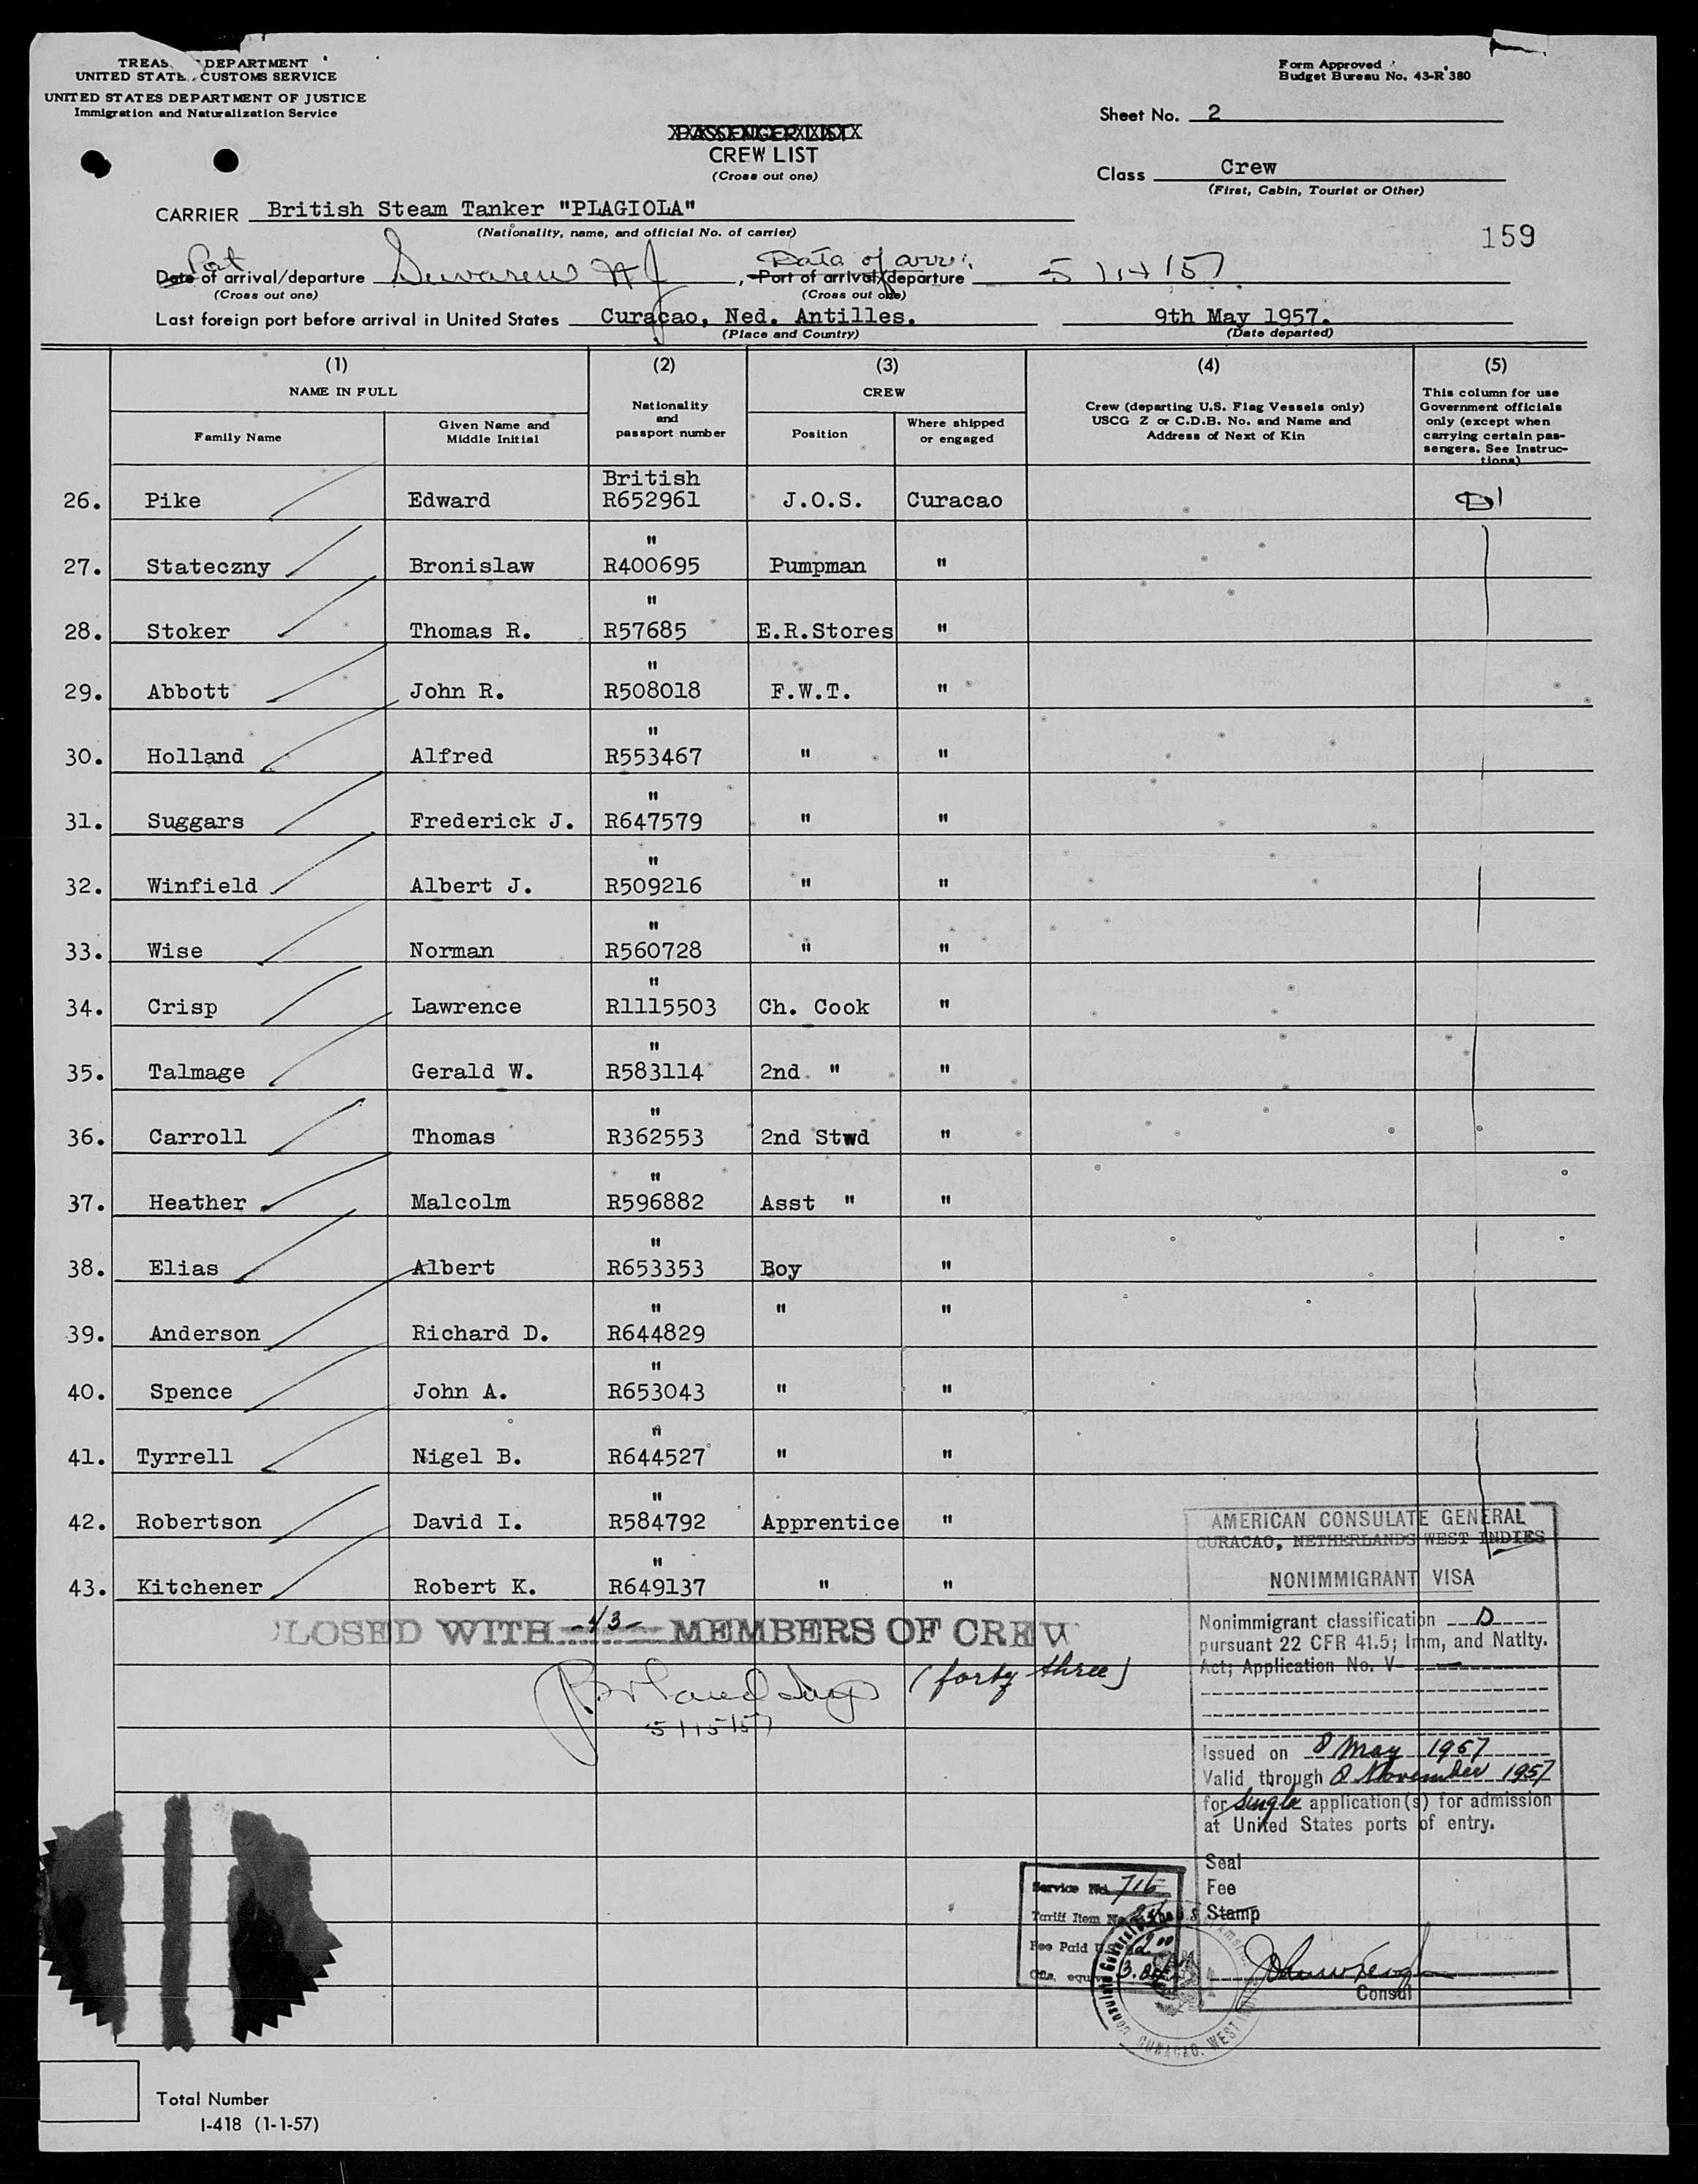 TREAS DEPARTMENT
UNITED STATE CUSTOMS SERVICE
UNITED STATES DEPARTMENT OF JUSTICE
Immigration and Naturalization Service
Form Approved
Budget Bureau No. 43-R 380
Sheet No. 2
PASSENGER LIST
CREW LIST
(Cross out one)
Class Crew
(First, Cabin, Tourist or Other)
CARRIER British Steam Tanker "PLAGIOLA"
(Nationality, name, and official No. of carrier)
159
Port Date of
Date of arrival/departure Sewaren NJ, Port of arrival/departure 5/14/57
(Cross out one) (Cross out one)
Last foreign port before arrival in United States Curaçao, Ned. Antilles. 9th May 1957.
(Place and Country) (Date departed)
(1) (2) (3) (4) (5)
NAME IN FULL Nationality and passport number CREW Crew (departing U.S. Flag Vessels only) USCG Z or C.D.B. No. and Name and Address of Next of Kin This column for use Government officials only (except when carrying certain pas-sengers. See Instruc-tions)
Family Name Given Name and Middle Initial Position Where shipped or engaged
British
26. Pike Edward R652961 J.O.S. Curacao D1
27. Stateczny Bronislaw " R400695 Pumpman "
28. Stoker Thomas R. " R57685 E.R.Stores "
29. Abbott John R. " R508018 F.W.T. "
30. Holland Alfred " R553467 " "
31. Suggars Frederick J. " R647579 " "
32. Winfield Albert J. " R509216 " "
33. Wise Norman " R560728 " "
34. Crisp Lawrence " R1115503 Ch. Cook "
35. Talmage Gerald W. " R583114 2nd " "
36. Carroll Thomas " R362553 2nd Stwd "
37. Heather Malcolm " R596882 Asst " "
38. Elias Albert " R653353 Boy "
39. Anderson Richard D. " R644829 " "
40. Spence John A. " R653043 " "
41. Tyrrell Nigel B. " R644527 " "
42. Robertson David I. " R584792 Apprentice "
43. Kitchener Robert K. " R649137 " "
LOSED WITH -43- MEMBERS OF CREW
(forty three)
5/15/57
AMERICAN CONSULATE GENERAL
CURACAO, NETHERLANDS WEST INDIES
NONIMMIGRANT VISA
Nonimmigrant classification D
pursuant 22 CFR 41.5; Imm, and Natlty.
Act; Application No. V-
Issued on 8 May 1957
Valid through 8 November 1957
for single application(s) for admission
at United States ports of entry.
Seal
Fee
Stamp
Consul
Service No. 716
Tariff Item No.
Fee Paid U.S.
CURACAO, WEST
Total Number
I-418 (1-1-57)